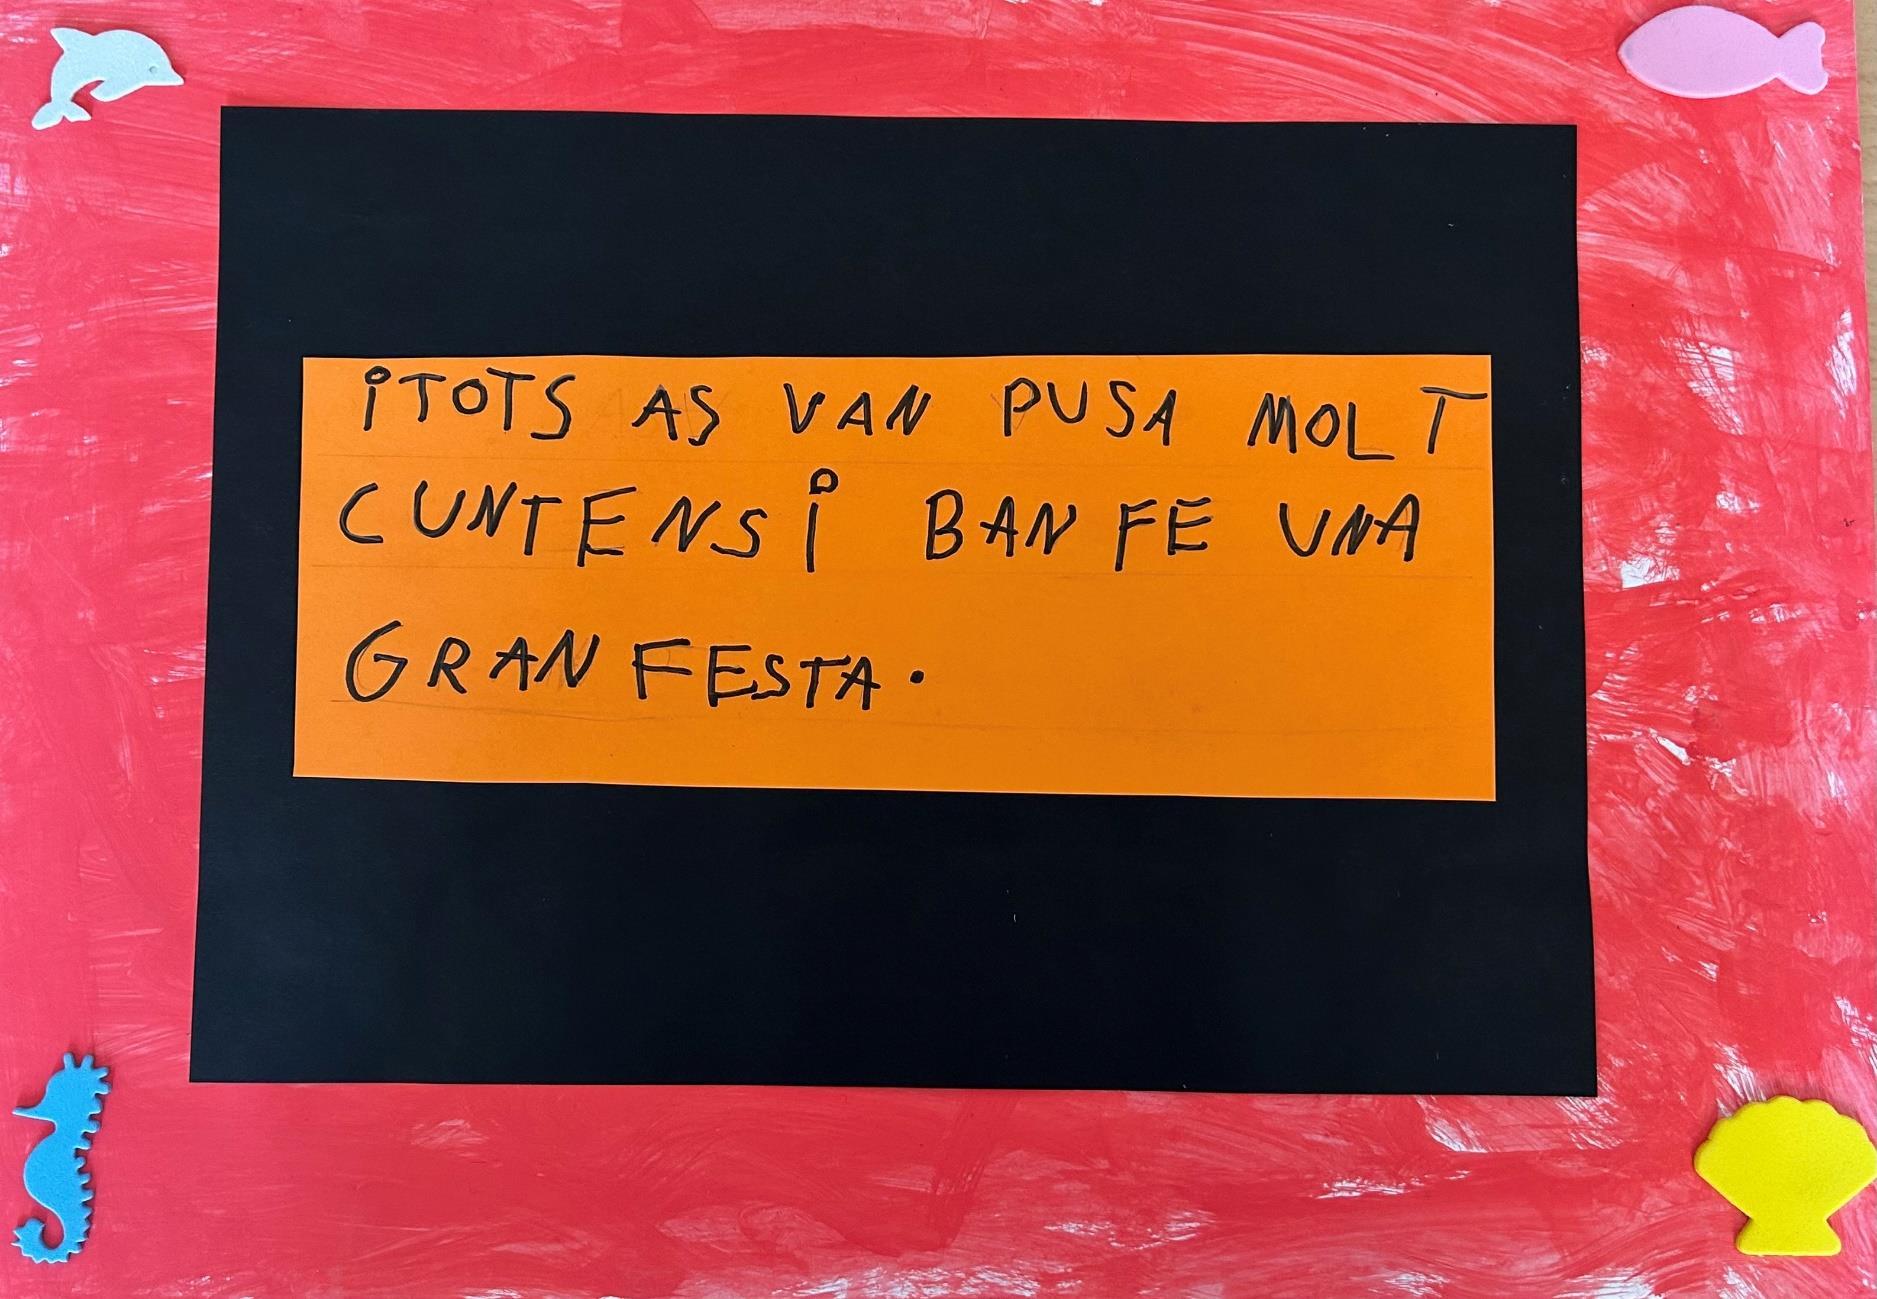 iTOTS AS VAN PUSA MOLT
CUNTENSi BAN FE UNA
GRAN FESTA.